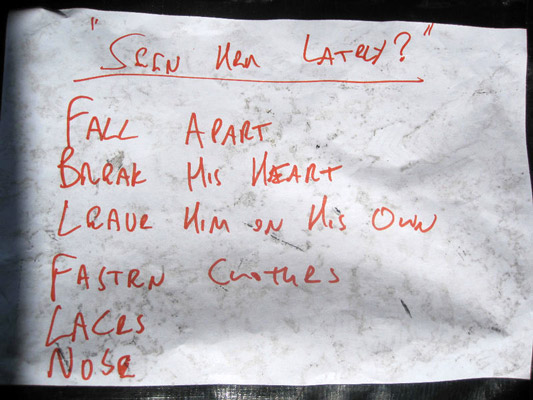 "SEEN HER LATELY?"
FALL APART
BREAK HIS HEART
LEAVE HIM ON HIS OWN
FASTEN CLOTHES
LACES
NOSE